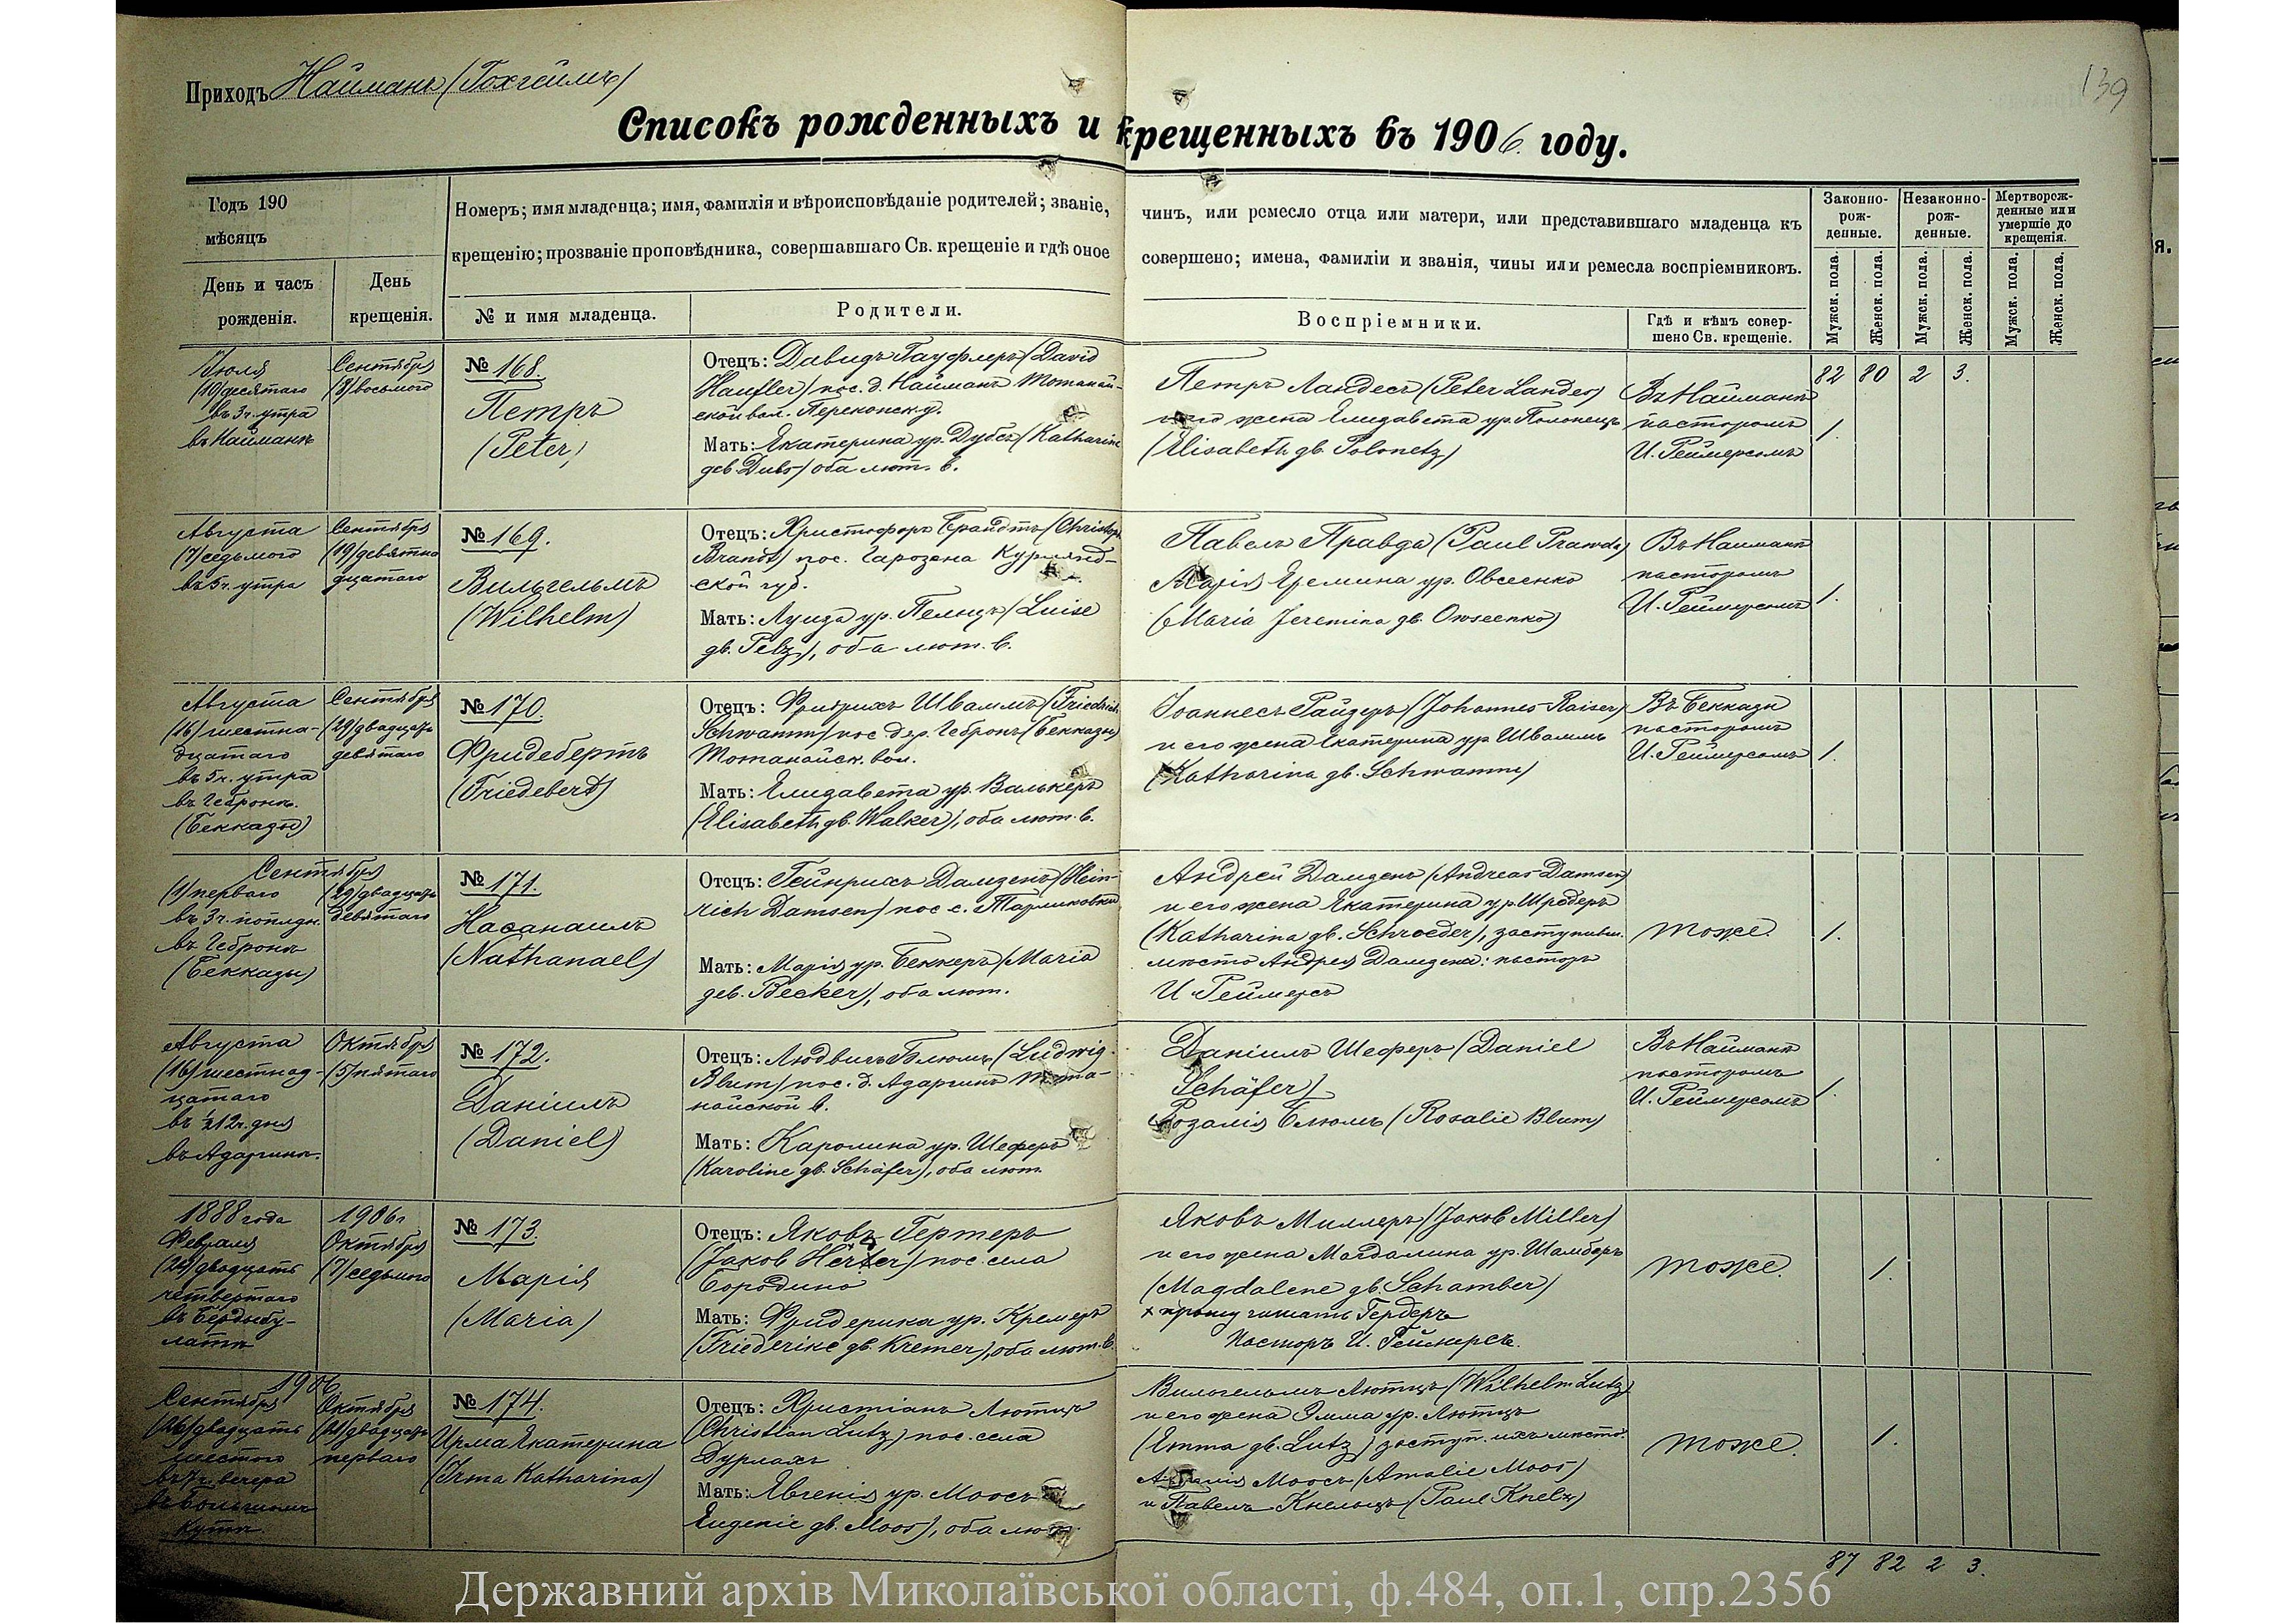 Приходъ Найманъ (Гохгеймъ)
139
Списокъ рожденныхъ и крещенныхъ въ 1906. году.
Годъ 190
мѣсяцъ
День и часъ
рожденія.
День
крещенія.
Номеръ; имя младенца; имя, фамилія и вѣроисповѣданіе родителей; званіе,
крещенію; прозваніе проповѣдника, совершавшаго Св. крещеніе и гдѣ оное
№ и имя младенца.
Родители.
чинъ, или ремесло отца или матери, или представившаго младенца къ
совершено; имена, фамиліи и званія, чины или ремесла воспріемниковъ.
Воспріемники.
Гдѣ и кѣмъ совер-
шено Св. крещеніе.
Законно-
рож-
денные.
Незаконно-
рож-
денные.
Мертворож-
денные или
умершіе до
крещенія.
Мужск. пола.
Женск. пола.
Мужск. пола.
Женск. пола.
Мужск. пола.
Женск. пола.
Іюля
(10) десятаго
въ 3 ч. утра
въ Найманѣ
Сентября
(8) восьмого
№ 168.
Петръ
(Peter)
Отецъ: Давидъ Гауфлеръ (David
Haufler) пос. д. Найманъ Тотанай-
ской вол. Перекопск. у.
Мать: Екатерина ур. Дубсъ (Katharine
geb. Dubs) оба лют. в.
Петръ Ландесъ (Peter Landes)
и его жена Елизавета ур. Полонецъ
(Elisabeth gb. Polonetz)
Въ Найманѣ
пасторомъ
И. Реймерсомъ
82 80 2 3.
1.
Августа
(7) седьмого
въ 5 ч. утра
Сентября
(19) девятна
дцатаго
№ 169.
Вильгельмъ
(Wilhelm)
Отецъ: Христофоръ Брандтъ (Christoph
Brandt) пос. Гарозена Курлянд-
ской губ.
Мать: Луиза ур. Пельцъ (Luise
gb. Pelz), оба лют. в.
Павелъ Правда (Paul Prawda)
Марія Еремина ур. Овсеенко
(Maria Jeremina gb. Owseenko)
Въ Найманѣ
пасторомъ
И. Реймерсомъ
1.
Августа
(16) шестна-
дцатаго
въ 5 ч. утра
въ Гебронѣ.
(Бекказы)
Сентября
(29) двадцать
девятаго
№ 170.
Фридебертъ
(Friedebert)
Отецъ: Фридрихъ Шваммъ (Friedrich
Schwamm) пос. дер. Гебронъ (Бекказы)
Тотанайск. вол.
Мать: Елизавета ур. Валькеръ
(Elisabeth gb. Walker), оба лют. в.
Іоаннесъ Райзеръ (Johannes Raiser)
и его жена Екатерина ур. Шваммъ
(Katharina gb. Schwamm)
Въ Бекказы
пасторомъ
И. Реймерсомъ
1.
Сентября
(1) перваго
въ 3 ч. пополдн.
въ Гебронѣ
(Бекказы)
(29) двадцать
девятаго
№ 171.
Насанаилъ
(Nathanael)
Отецъ: Гейнрихъ Дамзенъ (Hein-
rich Damsen) пос. с.
Мать: Марія ур. Беккеръ (Maria
geb. Becker), оба лют.
Андрей Дамзенъ (Andreas Damsen)
и его жена Екатерина ур. Шредеръ
(Katharina gb. Schroeder), заступивш.
мѣсто Андрея Дамзена: пасторъ
И. Реймерсъ
тоже.
1.
Августа
(16) шестнад-
цатаго
въ ½12 ч. дня
въ Адаргинѣ.
Октября
(5) пятаго
№ 172.
Даніилъ
(Daniel)
Отецъ: Людвигъ Блюмъ (Ludwig
Blum) пос. д. Адаргинъ Тота-
найской в.
Мать: Каролина ур. Шеферъ
(Karoline gb. Schäfer), оба лют.
Даніилъ Шеферъ (Daniel
Schäfer)
Розалія Блюмъ (Rosalie Blum)
Въ Найманѣ
пасторомъ
И. Реймерсомъ
1.
1888 года
Февраля
(24) двадцать
четвертаго
въ Бердыбу-
латѣ
1906 г
Октября
(7) седьмого
№ 173.
Марія
(Maria)
Отецъ: Яковъ Гертеръ
(Jakob Herter) пос. села
Бородино
Мать: Фридерика ур. Кремеръ
(Friederike gb. Kremer), оба лют. в.
Яковъ Миллеръ (Jakob Miller)
и его жена Магдалина ур. Шамберъ
(Magdalene gb. Schamber)
× прошу читать Гердеръ
Пасторъ И. Реймерсъ.
тоже.
1.
1906
Сентября
(26) двадцать
шестого
въ 7 ч. вечера
въ Большомъ
Кутѣ.
Октября
(21) двадцать
перваго
№ 174.
Ирма Екатерина
(Irma Katharina)
Отецъ: Христіанъ Лютцъ
(Christian Lutz) пос. села
Дурлахъ
Мать: Евгенія ур. Моосъ
Eugenie gb. Moos), оба лют.
Вильгельмъ Лютцъ (Wilhelm Lutz)
и его жена Эмма ур. Лютцъ
(Emma gb. Lutz) заступ. ихъ мѣсто:
Амалія Моосъ (Amalie Moos)
и Павелъ Кнельцъ (Paul Knelz)
тоже.
1.
87 82 2 3.
Державний архів Миколаївської області, ф.484, оп.1, спр.2356